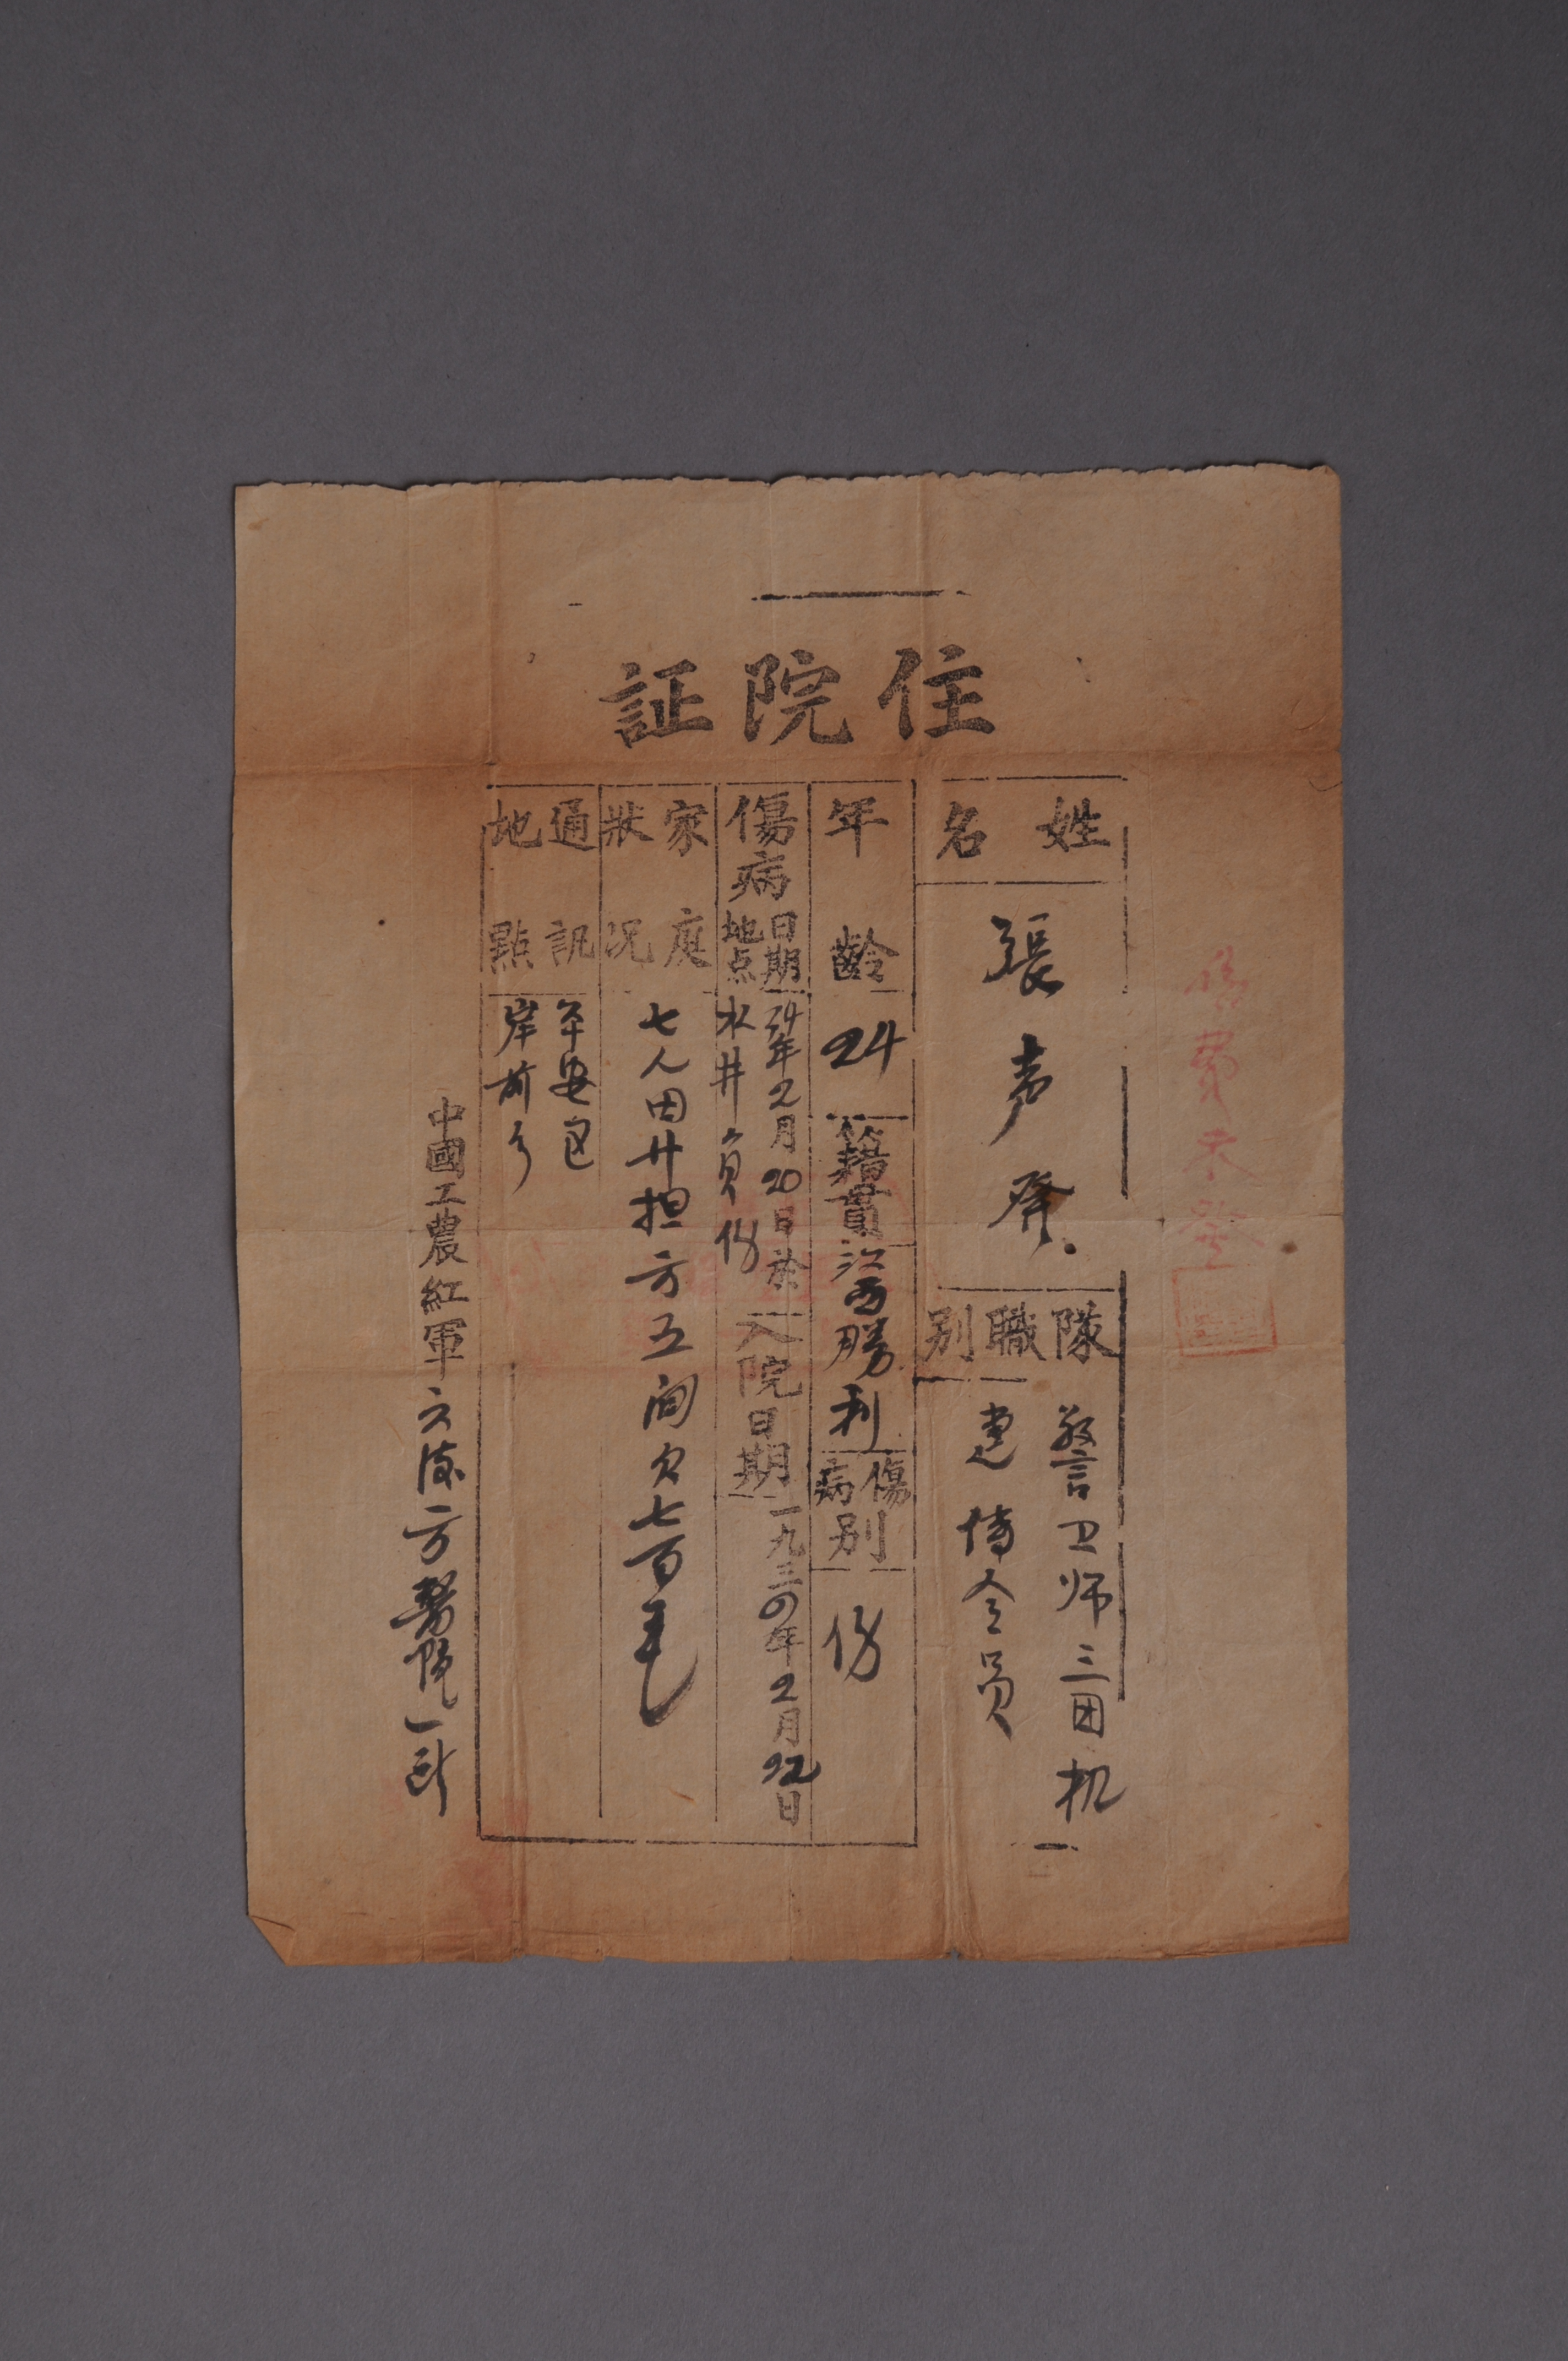 住院証
姓名
張声發
隊職別
警卫师三团机
連传令員
年齡
24
籍貫
江西勝利
傷病別
伤
傷病日期地点
34年2月20日於
水井負伤
入院日期
一九三四年2月22日
家庭狀况
七人田廿担方五间欠七百毛
通訊地點
平安区
岸前乡
中國工農紅軍
方醫院一所
費未發